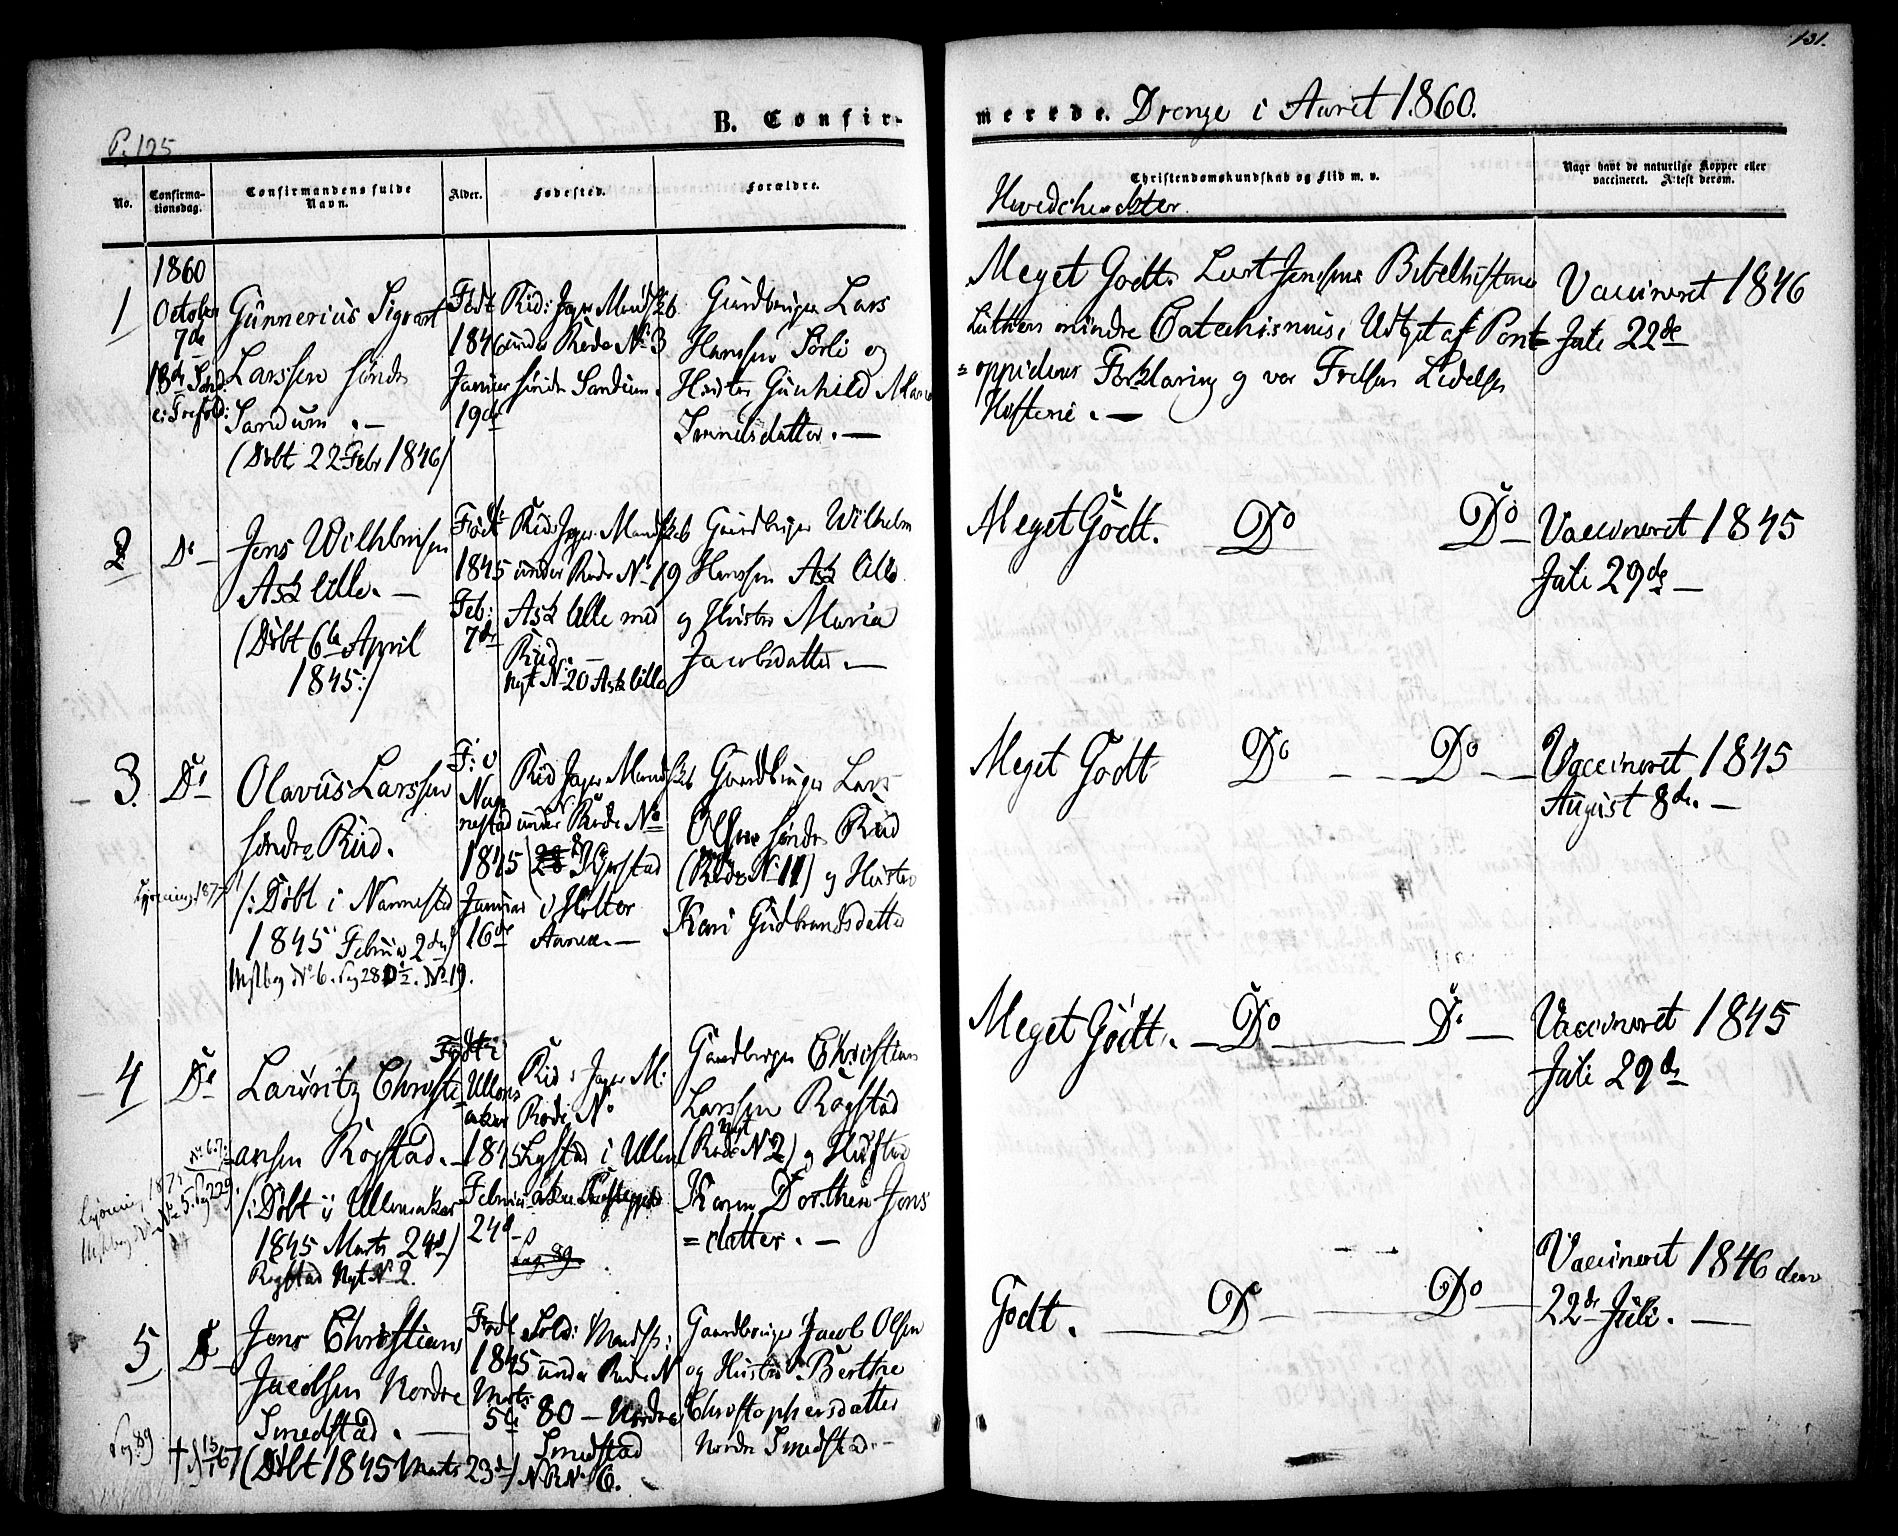 131.
P. 125
B. Confirmerede. Drenge i Aaret 1860.
No.
Confirmationsdag.
Confirmandens fulde Navn.
Alder.
Fødested.
Forældre.
Christendomskundskab og Flid m. v.
Naar havt de naturlige Kopper eller vaccineret. Attest derom.
1
1860
October
7de
18de Sønd
e: Trefold:
Gunnerius Sigvart
Larssen søndr
Sandum. —
(Døbt 22 Febr 1846)
Født
1846
Januar
19de
Rid: Jæger Mandskb
under Rode No 3
søndre Sandum.
Gaardbruger Lars
Hanssen Sørli og
Hustro Gunhild Marie
datter. —
Meget Godt.
Luthers mindre Catechismus, Udtog af Pont=
=oppidans Forklaring og vor Frelsers Lidelses
Historie. —
Vaccineret 1846
Juli 22de
2
Do —
Jens Wilhelmsen
Ask lille. —
(Døbt 6te April
1845:)
Født
1845
Feb:
7de
Rid: Jæger Mandskab
under Rode No 19
Ask lille med
Rud. —
nyt No 20 Ask lille
Gaardbruger Wilhelm
Hanssen Ask lille
og Hustro Maria
Jacobsdatter. —
Meget Godt. Do Do —
Vaccineret 1845
Juli 29de —
3.
Do
Olavus Larssen
søndre Rud.
/: Døbt i Nannestad
1845 Februar 2den)
No 6. Pag 28 No 19.
F: i
Nan
nestad
1845
Januar
16de
Rid Jæger Mandskb
under Rode No
i Holter
Annex. —
Gaardbruger Lars
Olsen søndre Rud
(Rode No 11) og Hustro
Kari Gudbrandsdatter
Meget Godt Do — Do —
Vaccineret 1845
August 8de. —
4
Do
Lauritz Christi
ansen Rogstad. —
/: Døbt i Ullensaker
1845 Marts 24de)
Rogstad Nyt No 2.
Født i
Ullens
aker
1845
Februar
24d
Rid: Jæger M:
Rode No
i Ullens
aker
Pag 89
Gaardbruger Christian
Larssen Rogstad
(Rode nyt No 2) og Hustro
Karen Dorthea Jens
=datter. —
Meget Godt. — Do — Do —
Vaccineret 1845
Juli 29de
5
Do —
Jens Christian
Jacobsen Nordre
Smedstad. —
(Døbt 1845 Marts 23de)
Pag. 89
Født
1845
Marts
5te
Sold: Mandsk:
under Rode No
80 — Nordre
Smedstad
N.R.No 6.
Gaardbruger Jacob Olsen
og Hustro Berthe
Christophersdatter
Nordre Smedstad. —
Godt. — Do — Do —
Vaccineret 1846 den
22de Juli. —